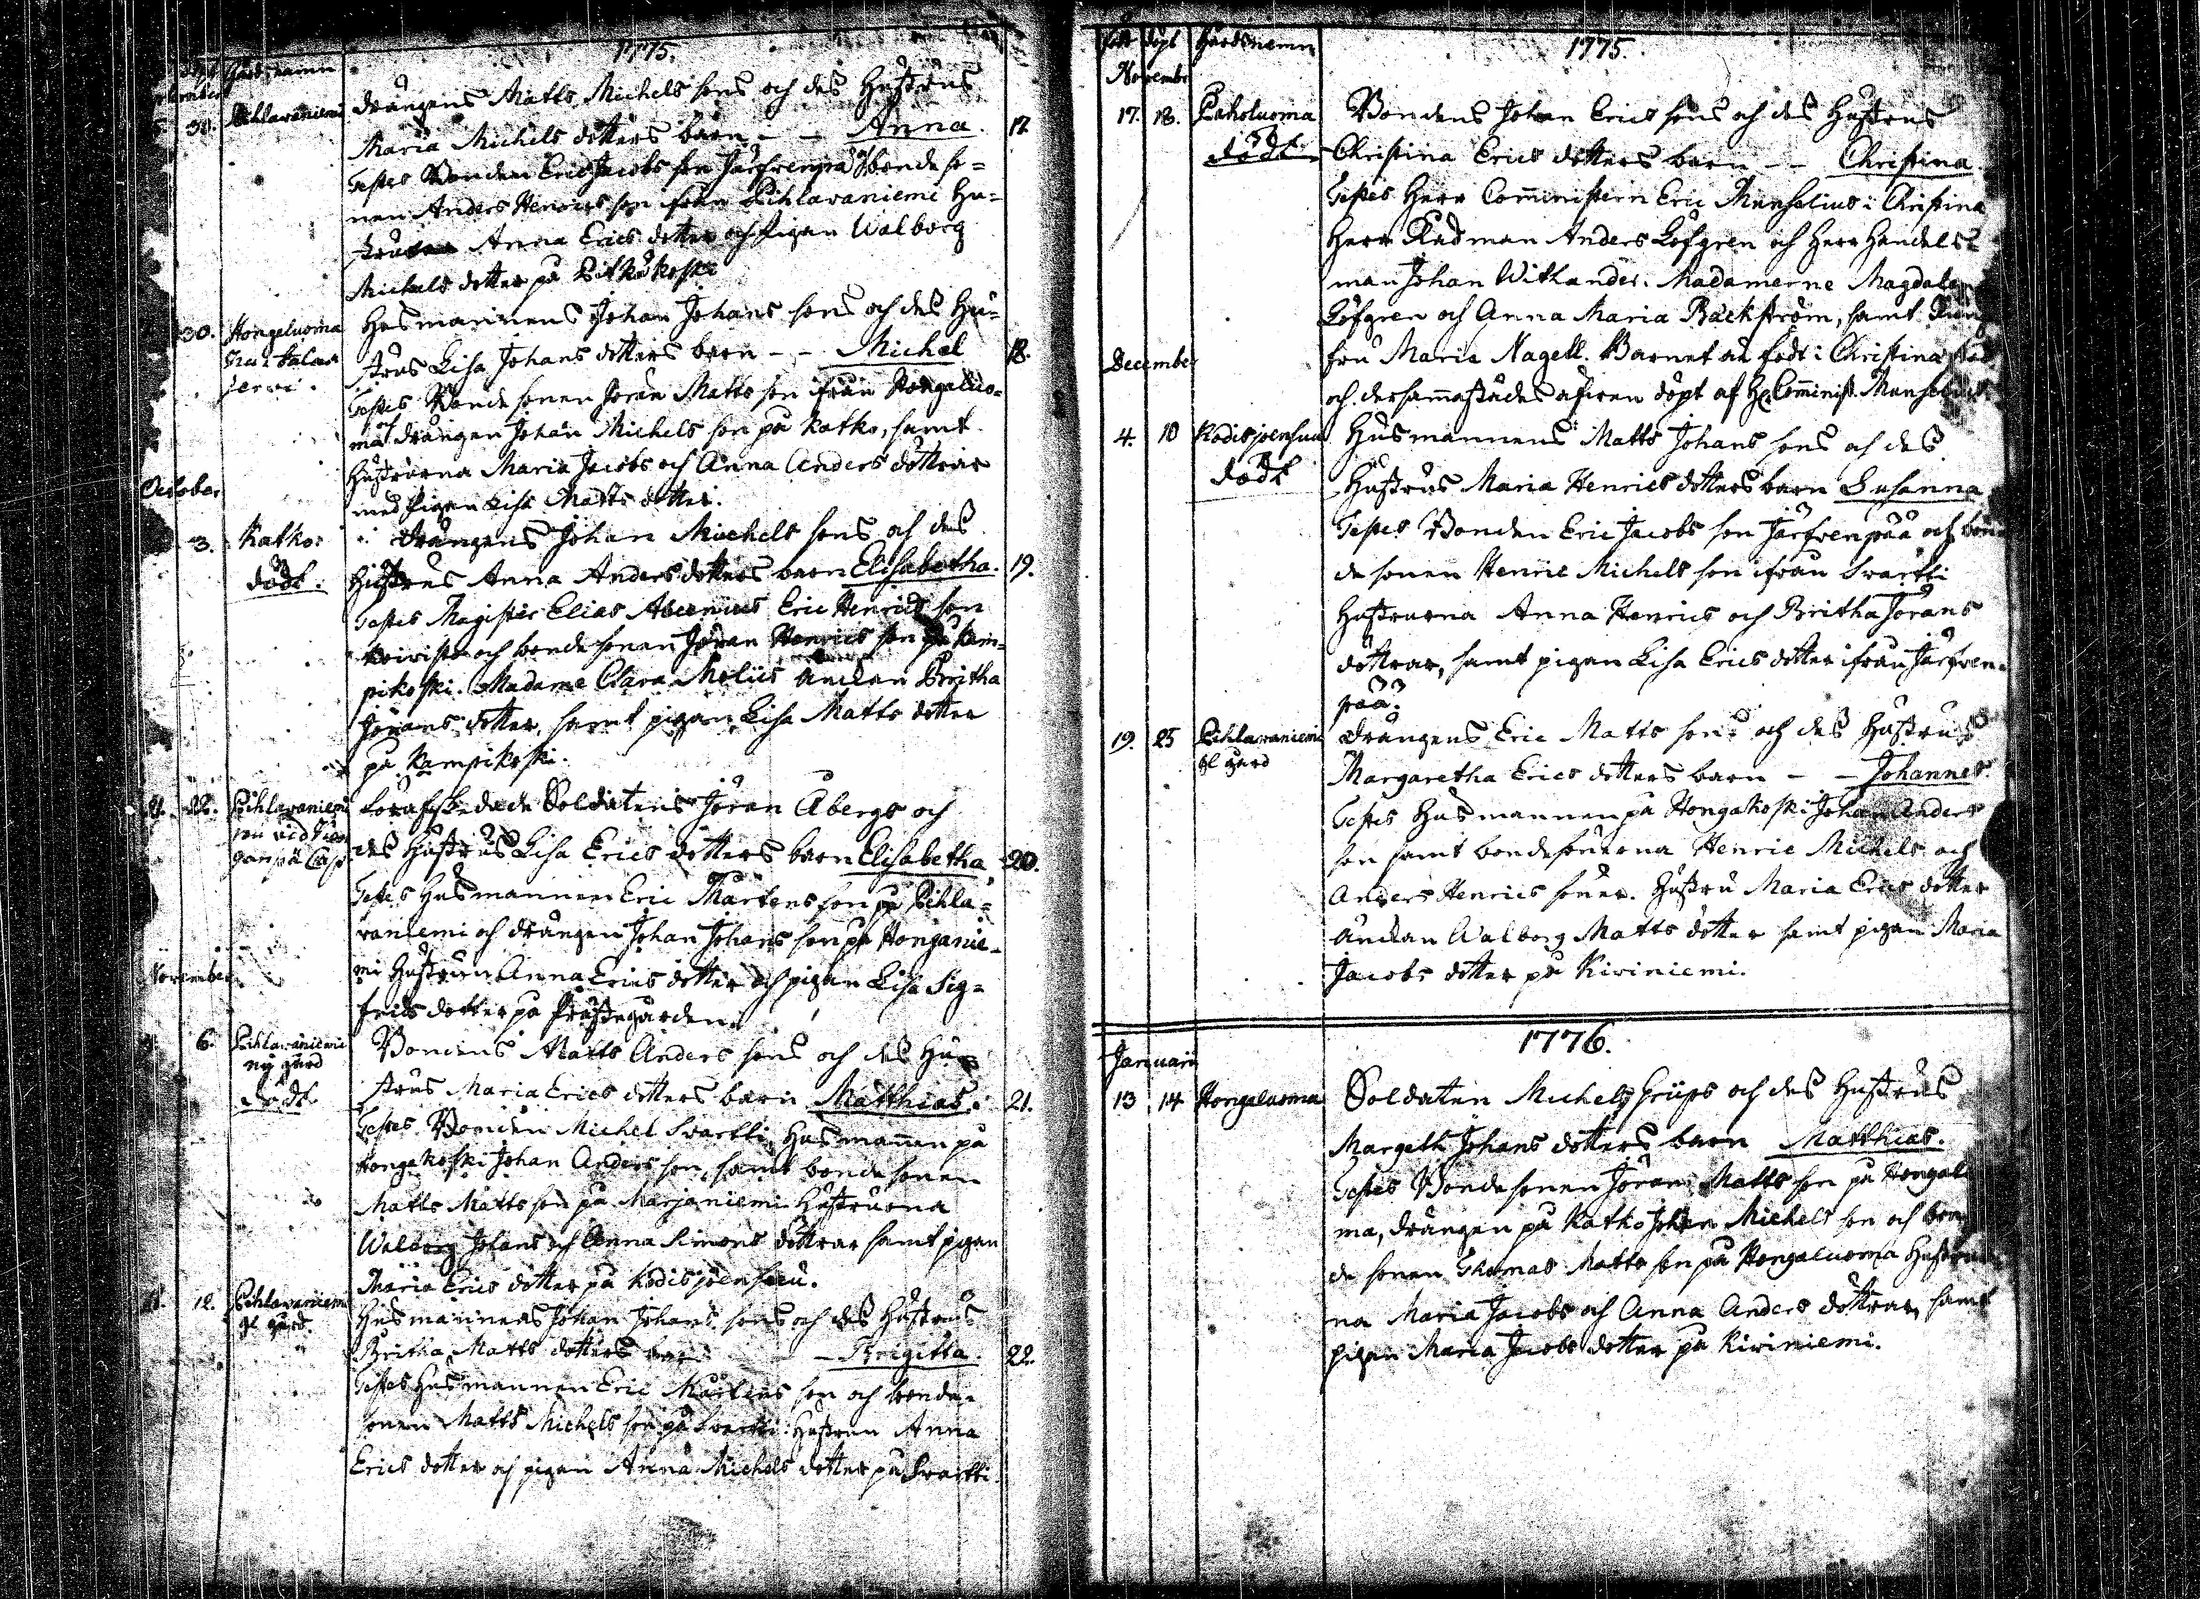 1775.
Gårdsnamn
September
30. Pihlavaniemi Drängens Matts Michels sons och des Hustrus
Maria Michels dotters barn - - Anna. 17.
Testes Bonden Eric Jacobs son Järfvenpä och bondeso=
nen Anders Henrics son från Pihlavaniemi Hu=
strun Anna Erics dotter och Pigan Walborg
Michels dotter på Pitkäkoski
30. Hongeluoma Husmannens Johan Johans sons och des Hu=
jervi. strus Lisa Johans dotters barn - - Michel 18.
Testes Bonde sonen Jöran Matts son ifrån Hongaluo=
ma och drängen Johan Michels son på Katko, samt
Hustrurna Maria Jacobs och Anna Anders döttrar
med Pigan Lisa Matts dotter.
October
3. Katko. Drängens Johan Michels sons och des
död. Hustrus Anna Anders dotters barn Elisabetha. 19.
Testes Magister Elias Eric Henrics son
och bonde sonen Jöran Henrics son på Kam=
pikoski. Madame Clara Enkan Britha
Jörans dotter, samt pigan Lisa Matts dotter
på Kampikoski.
21. 22. Pihlavaniemi Soldatens Jöran Åbergs och
des Hustrus Lisa Erics dotters barn Elisabetha 20.
Testes Husmannen Eric Mårtens son på Pihla=
vaniemi och drängen Johan Johans son på Honganie=
mi Hustrun Anna Erics dotter och pigan Lisa Sig=
frids dotter på Prästegården.
November
6. Pihlavaniemi Bondens Matts Anders sons och des Hu=
ny gård
död strus Maria Erics dotters barn Matthias. 21.
Testes Bonden Michel Svartti, Husmannen på
Hongakoski Johan Anders son, samt bonde sonen
Matts Matts son på Marjaniemi Hustrurna
Walborg Johans och Anna Simons döttrar samt pigan
Maria Erics dotter på Kodisjoensuu.
12. Pihlavaniemi Husmannens Johan Johans sons och des Hustrus
gl gård. Britha Matts dotters barn - Brigitta. 22.
Testes Husmannen Eric Mårtens son och bonde=
sonen Matts Michels son på Svartti: Hustrun Anna
Erics dotter och pigan Anna Michels dotter på Svartti.
född döpt Gårdsnamn 1775.
November
17. 18. Pakoluoma Bondens Johan Erics sons och des Hustrus
död Christina Erics dotters barn - - Christina.
Testes Herr Comministern Eric Munselius i Christina
Herr Rådman Anders Löfgren och Herr Handels=
man Johan Witlander. Madamerne Magdalena
Löfgren och Anna Maria Bäckström, samt Jung
fru Maria Nagell. Barnet är födt i Christina stad
och dersammastädes äfven döpt af Hr Comminist. Munselius
December
4. 10 Kodisjoensuu Husmannens Matts Johans sons och des
död Hustrus Maria Henrics dotters barn Susanna
Testes Bonden Eric Jacobs son Järfvenpää och bon
de sonen Henric Michels son ifrån Svartti
Hustrurna Anna Henrics och Britha Jörans
döttrar, samt pigan Lisa Erics dotter ifrån Järfven=
pää.
19. 25 Pihlavaniemi Drängens Eric Matts sons och des Hustrus
gl gård Margaretha Erics dotters barn - - Johannes.
Testes Husmannen på Hongakoski Johan Anders
son samt bondesönerna Henric Michels och
Anders Henrics söner. Hustru Maria Erics dotter
Enkan Walborg Matts dotter samt pigan Maria
Jacobs dotter på Kiviniemi.
1776.
Januarii
13 14 Hongaluoma Soldaten Michels och des Hustrus
Margeth Johans dotters barn Matthias.
Testes Bonde sonen Jöran Matts son på Hongalu
ma, drängen på Katko Johan Michels son och bon
de sonen Thomas Matts son på Hongaluoma Hustrur
na Maria Jacobs och Anna Anders döttrar, samt
pigan Maria Jacobs dotter på Kiviniemi.